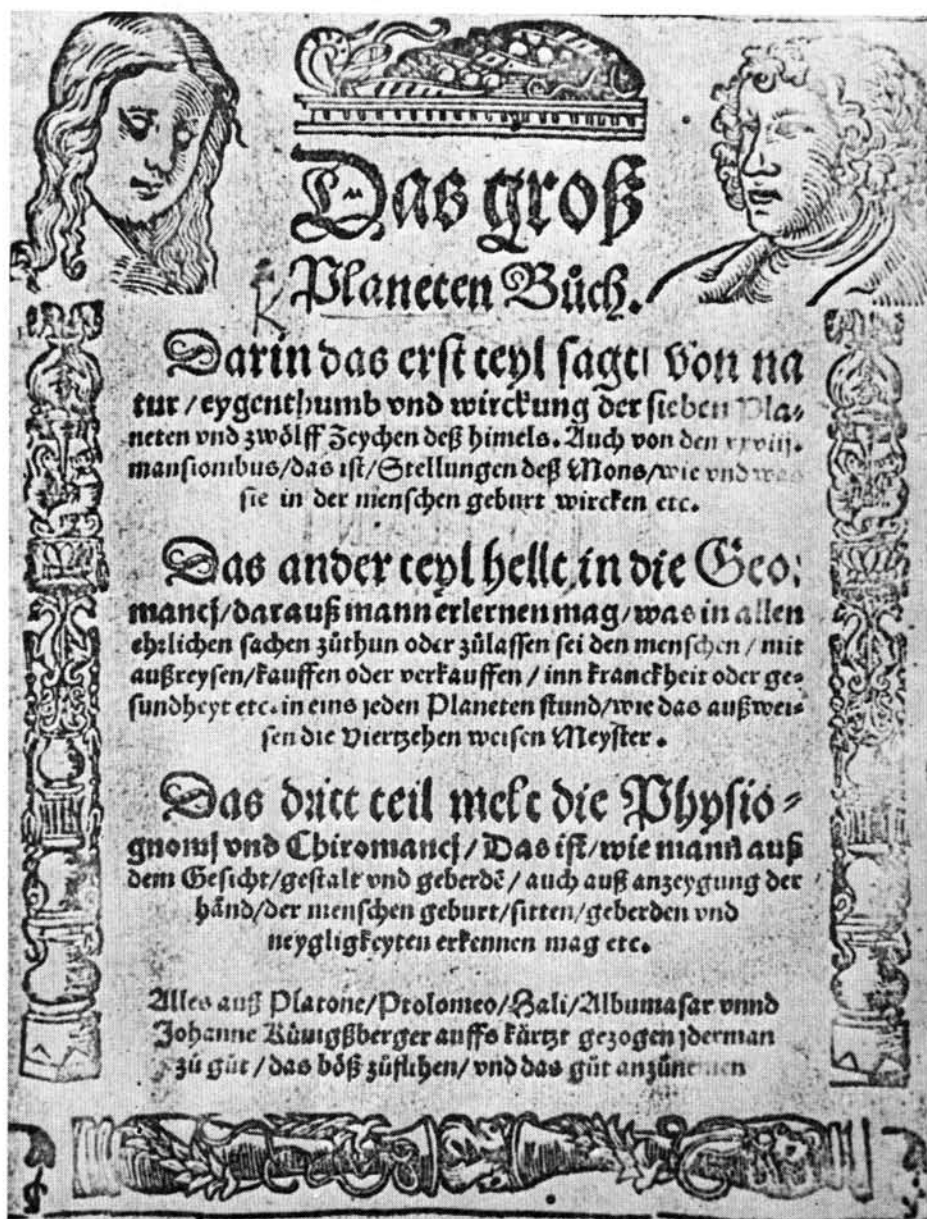 Das groß
Planeten Bůch.
Darin das erst teyl sagt von na
tur/eygenthumb vnd wirckung der sieben Pla-
neten vnd zwölff Zeychen deß himels. Auch von den xxviij.
mansionibus/das ist/Stellungen deß Mons/wie vnd was
sie in der menschen geburt wircken etc.
Das ander teyl hellt in die Geo:
mancj/darauß mann erlernen mag/was in allen
ehrlichen sachen zůthun oder zůlassen sei den menschen/mit
außreysen/kauffen oder verkauffen/inn kranckheit oder ge-
sundheyt etc. in eins jeden Planeten stund/wie das außwei-
sen die Viertzehen weisen Meyster.
Das dritt teil melt die Physio-
gnomj vnd Chiromancj/Das ist/wie mann auß
dem Gesicht/gestalt vnd geberdẽ/auch auß anzeygung der
händ/der menschen geburt/sitten/geberden vnd
neygligkeyten erkennen mag etc.
Alles auß Platone/Ptolomeo/Hali/Albumasar vnnd
Johanne Künigßberger auffs kürtzt gezogen jderman
zů gůt/das böß zůflihen/vnd das gůt anzůnemen